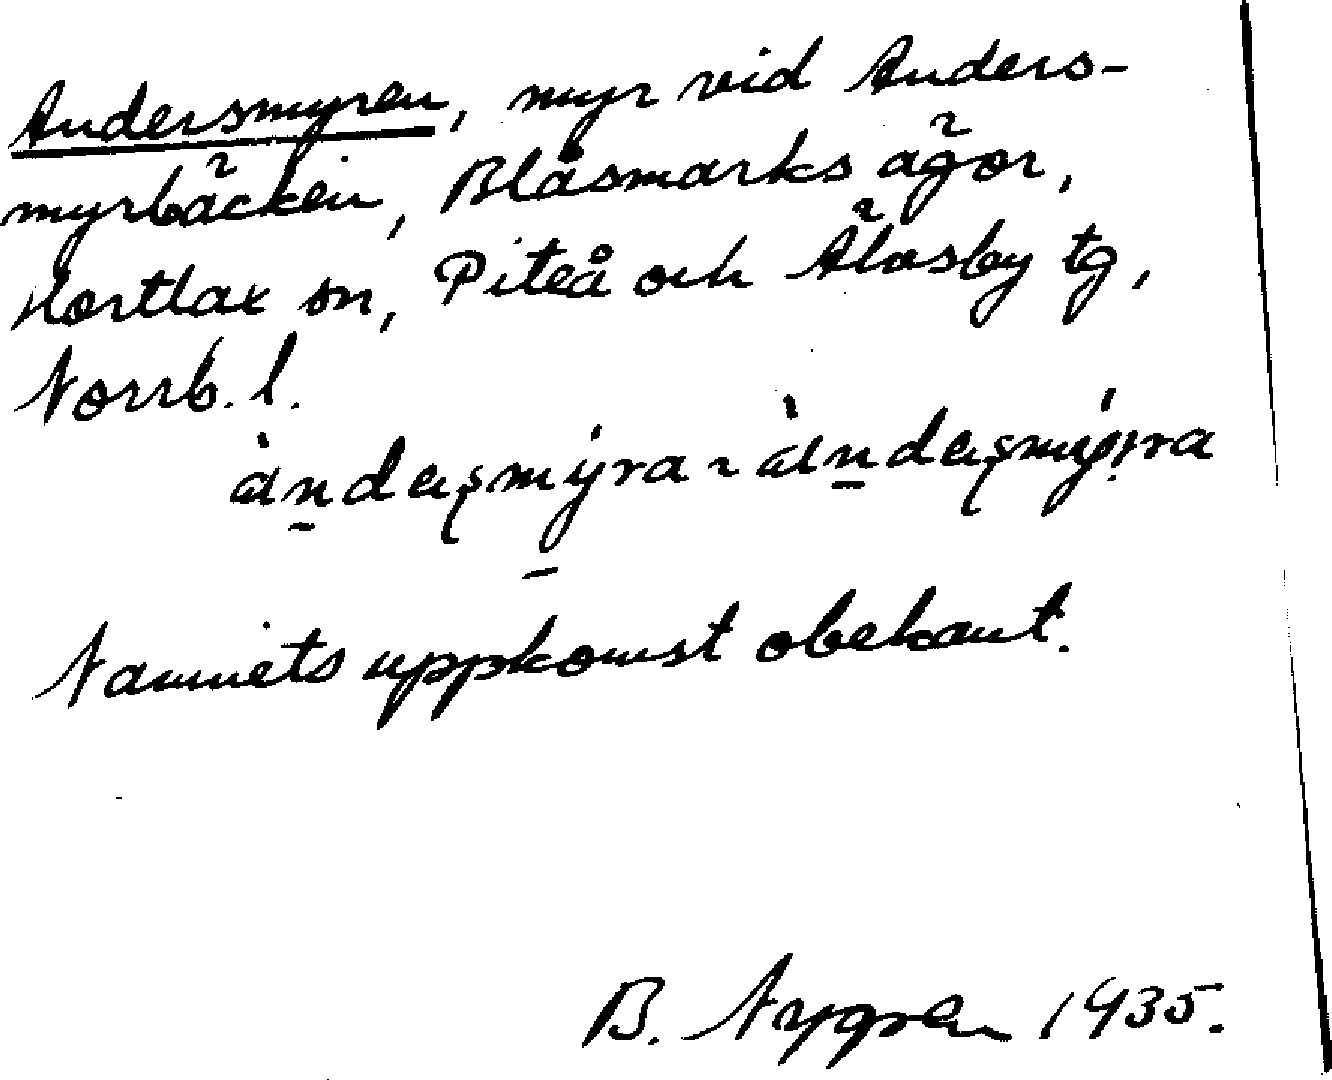 Andersmyren, myr vid Anders-
myrbäcken, Blåsmarks ägor,
Hortlax sn, Piteå och Älvsby tg,
Norrb. l.
àndeʂmýra ~ àndeʂmýra
Namnets uppkomst obekant.
B. Nygren 1935.